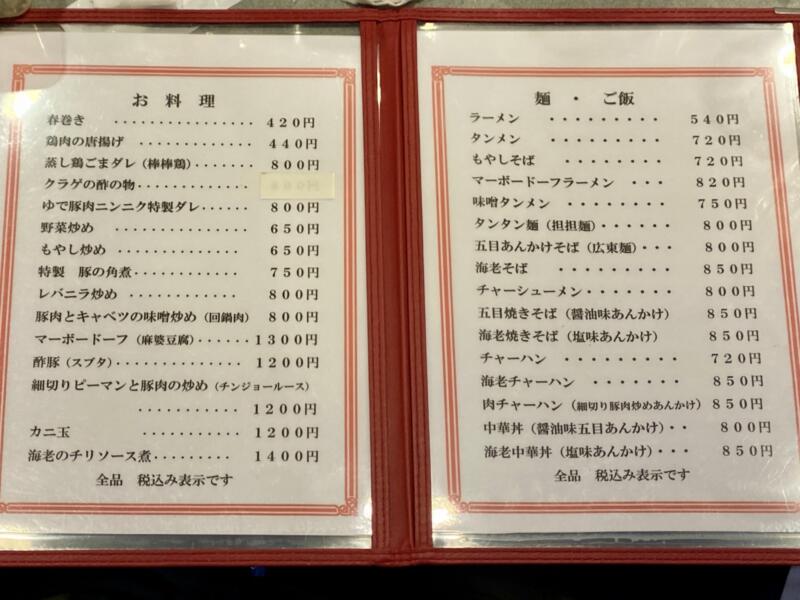 お料理
春巻き ················ 420円
鶏肉の唐揚げ ············· 440円
蒸し鶏ごまダレ（棒棒鶏）······· 800円
クラゲの酢の物·············
ゆで豚肉ニンニク特製ダレ······ 800円
野菜炒め ·············· 650円
もやし炒め ·············· 650円
特製 豚の角煮············ 750円
レバニラ炒め ············ 800円
豚肉とキャベツの味噌炒め（回鍋肉） 800円
マーボードーフ（麻婆豆腐）······1300円
酢豚（スブタ）·············1200円
細切りピーマンと豚肉の炒め（チンジョールース）
···········1200円
カニ玉 ···········1200円
海老のチリソース煮·········1400円
全品 税込み表示です
麺・ご飯
ラーメン ········· 540円
タンメン ········· 720円
もやしそば ········ 720円
マーボードーフラーメン ··· 820円
味噌タンメン ········ 750円
タンタン麺（担担麺）······· 800円
五目あんかけそば（広東麺）··· 800円
海老そば ········· 850円
チャーシューメン······· 800円
五目焼きそば（醤油味あんかけ） 850円
海老焼きそば（塩味あんかけ） 850円
チャーハン ········· 720円
海老チャーハン ······· 850円
肉チャーハン（細切り豚肉炒めあんかけ）850円
中華丼（醤油味五目あんかけ）·· 800円
海老中華丼（塩味あんかけ）··· 850円
全品 税込み表示です